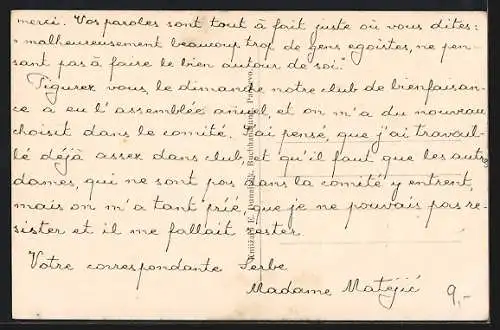 merci. Vos paroles sont tout à fait juste où vous dites:
"malheureusement beaucoup trop de gens egoistes, ne pen-
sant pas à faire le bien autour de soi."
Figurez vous, le dimanche notre club de bienfaisan-
ce a eu l'assemblée anuel, et on m'a du nouveau
choisit dans le comité. J'ai pensé, que j'ai travail-
lé déjà assez dans club, et qu'il faut que les autres
dames, qui ne sont pas dans la comité y entrent,
mais on m'a tant prié, que je ne pouvais pas re-
sister et il me fallait rester.
Votre correspondante Serbe
Madame Matéjić
9,-
Buchhandlung, Pančevo.